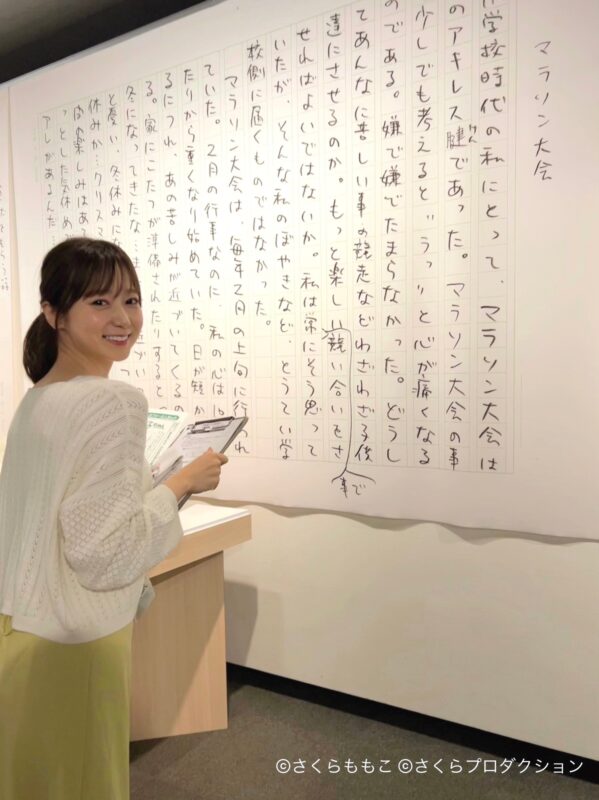 マラソン大会
学校時代の私にとって、マラソン大会は
のアキレス腱であった。マラソン大会の事
けん
少しでも考えるとうッと心が痛くなる
のである。嫌で嫌でたまらなかった。どうし
てあんなに苦しい事の競走などわざわざ子供
達にさせるのか。もっと楽しい競い合いをさ
事で
せればよいではないか。私は常にそう思って
いたが、そんな私のぼやきなど、とうてい学
校側に届くものではなかった。
マラソン大会は、毎年2月の上旬に行われ
ていた。2月の行事なのに、私の心は
たりから重くなり始めていた。日が短か
るにつれ、あの苦しみが近づいてくるの
る。家にこたつが準備されたりすると
冬になってきたな…
と憂い、冬休みにな
休みか…クリスマ
の楽しみはあ
っとした気休め
アレがあるんだ…
©さくらももこ ©さくらプロダクション